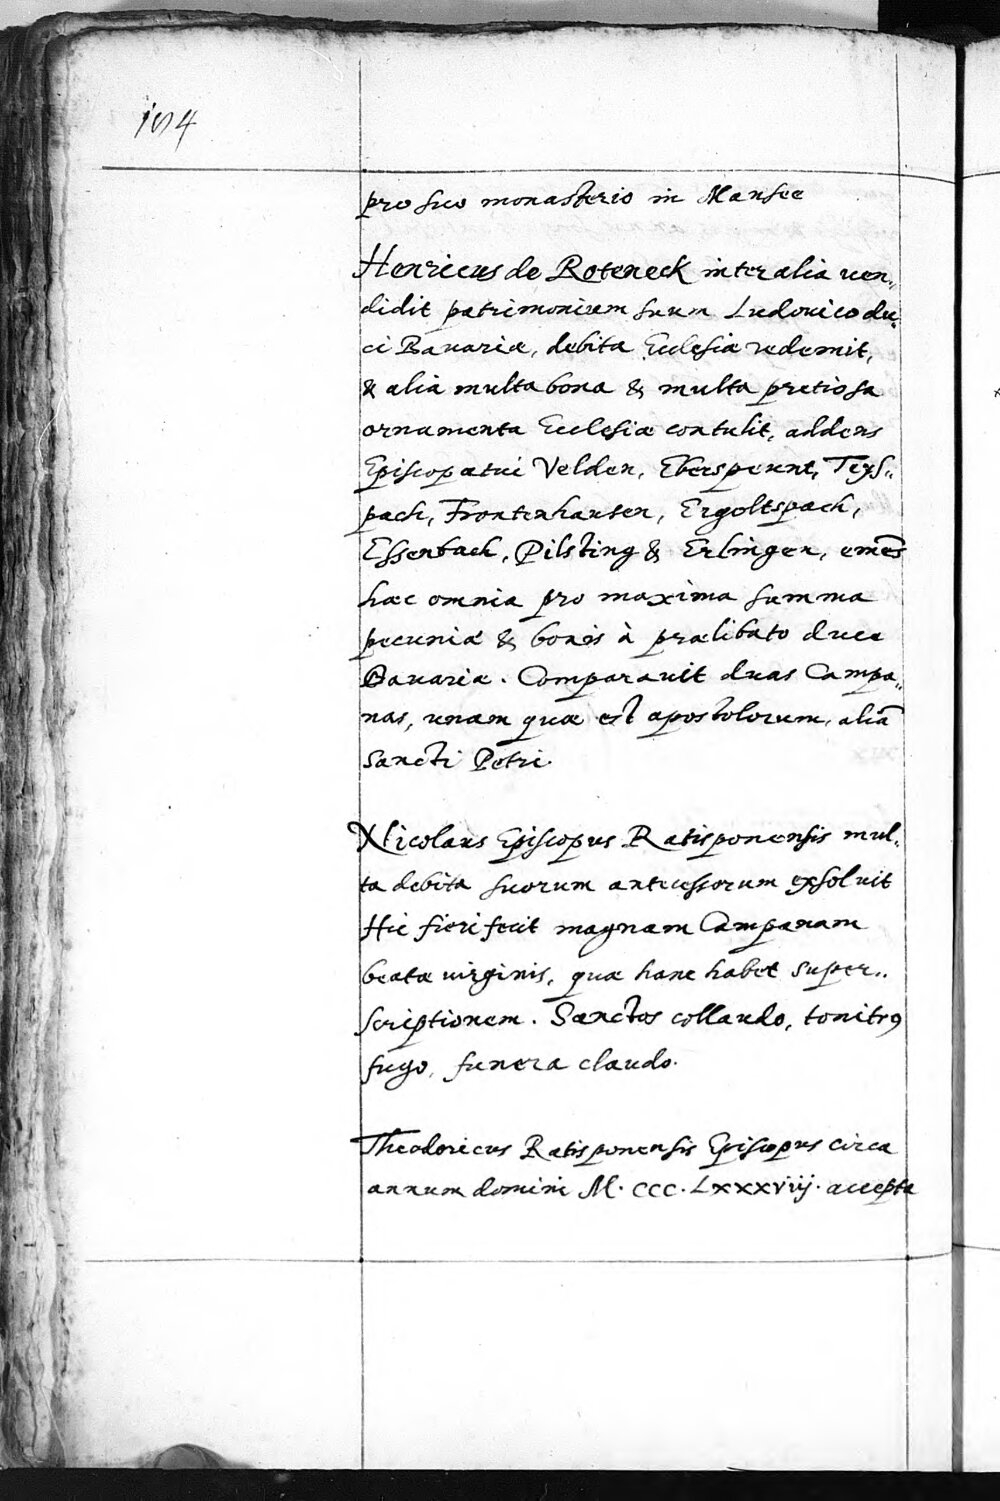 104
pro suo monasterio in Mansee
Henricus de Roteneck inter alia ven„
didit patrimonium suum Ludouico du„
ci Bauariæ, debita Ecclesiæ redemit,
& alia multa bona & multa pretiosa
ornamenta Ecclesiæ contulit, addens
Episcopatui Velden, Eberspeunt, Teys„
pach, Frontenhausen, Ergoltspach,
Essenbach, Pilsting & Erlingen, emēs
hæc omnia pro maxima summa
pecuniæ & bonis à prælibato duce
Bauariæ. Comparauit duas Campa„
nas, unam quæ est apostolorum, aliā
sancti Petri.
Nicolaus Episcopus Ratisponensis mul„
ta debita suorum antecessorum exsoluit
Hic fieri fecit magnam Campanam
beatæ virginis, quæ hanc habet super„
scriptionem. Sanctos collaudo, tonitrꝯ
fugo, funera claudo.
Theodoricus Ratisponensis Episcopus circa
annum domini M. CCC. Lxxxviij. accepta